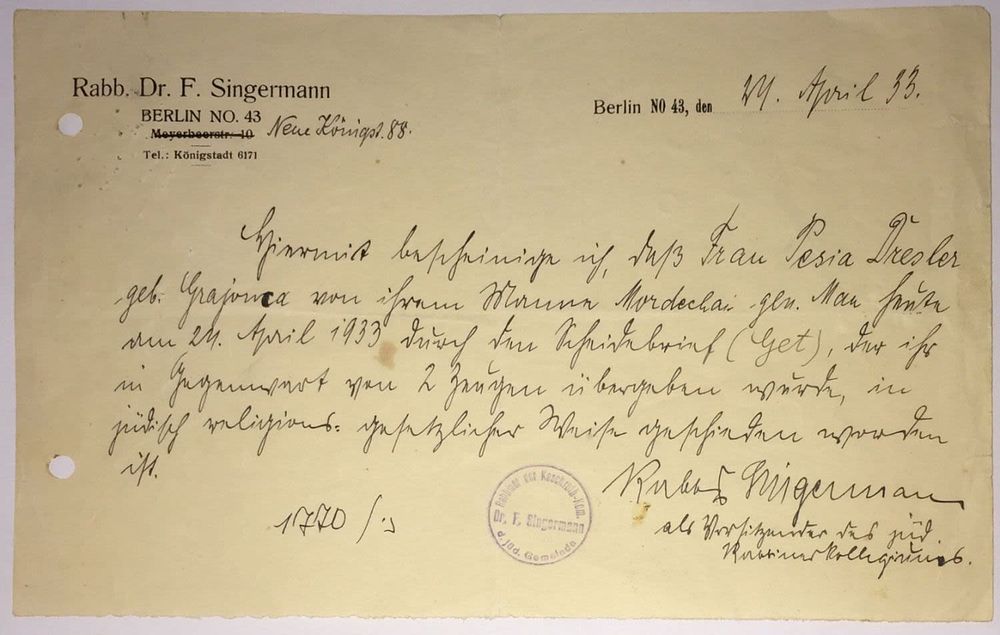 Rabb. Dr. F. Singermann
BERLIN NO. 43
Meyerbeerstr. 10 Neue Königst. 88.
Tel.: Königstadt 6171
Berlin NO 43, den 24. April 33.
Hiermit bescheinige ich, daß Frau Pesia Dresler
geb. Grajonca von ihrem Manne Mordechai gen. Max heute
am 24. April 1933 durch den Scheidebrief (Get), der ihr
in Gegenwart von 2 Zeugen übergeben wurde, in
jüdisch religions=gesetzlicher Weise geschieden worden
ist.
Rabb. Dr. Singermann
als Vorsitzender des jüd.
Rabbinerkollegiums.
1770
Rabbiner der Kaschruth-Kom.
Dr. F. Singermann
d. jüd. Gemeinde